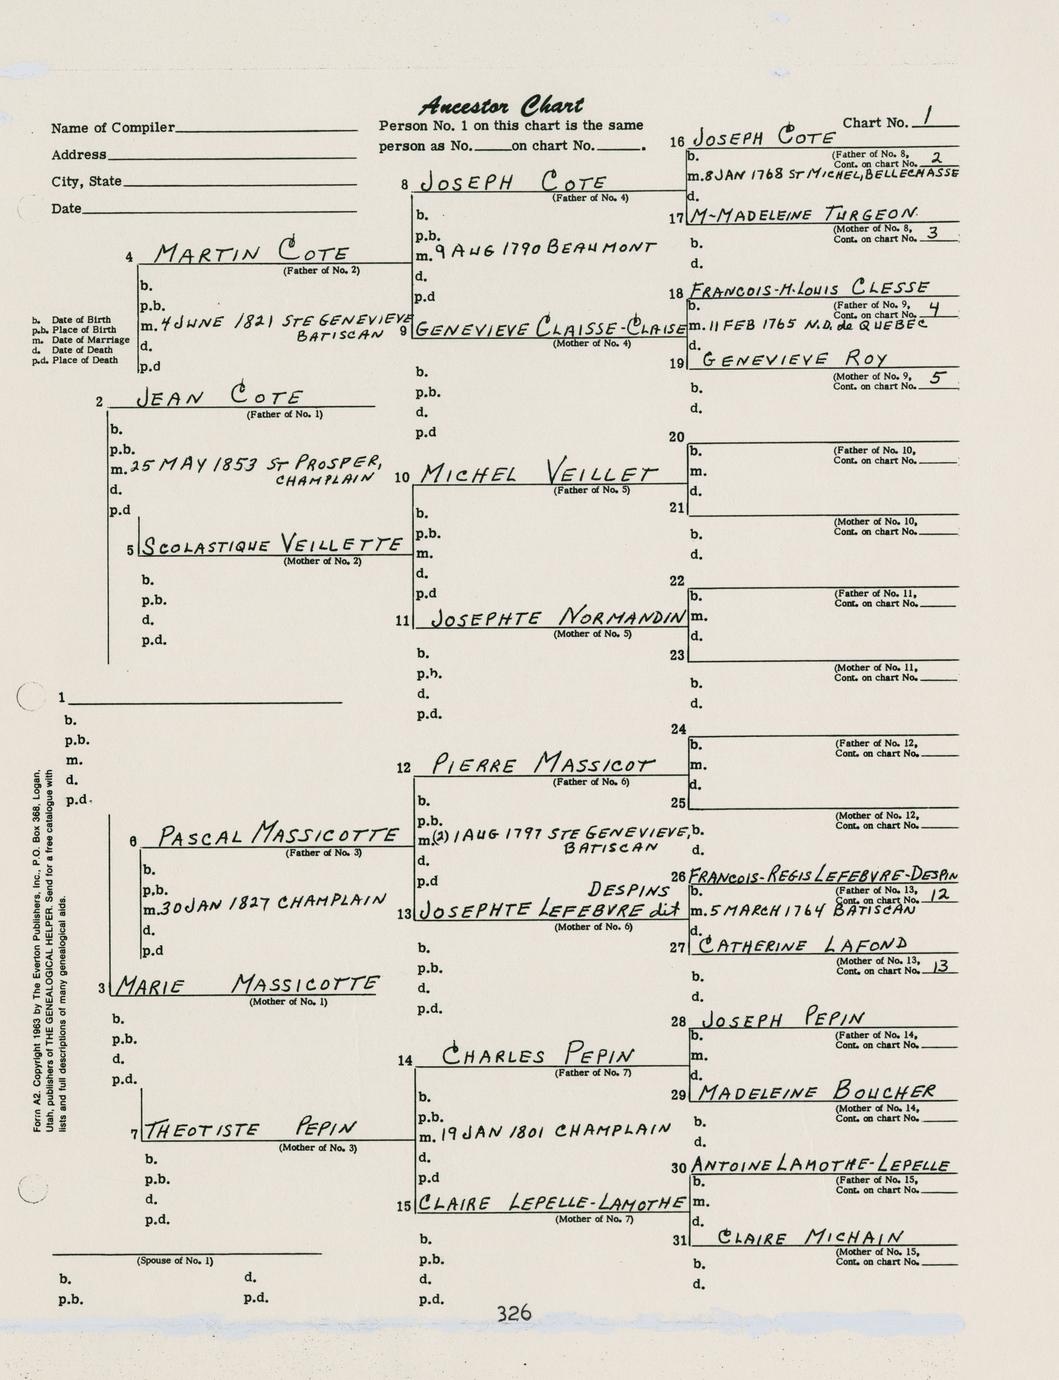 Ancestor Chart
Name of Compiler
Address
City, State
Date
Person No. 1 on this chart is the same
person as No. on chart No. .
Chart No. 1
16 JOSEPH COTE
b. (Father of No. 8,
Cont. on chart No. 2
m. 8 JAN 1768 ST MICHEL, BELLECHASSE
d.
17 M-MADELEINE TURGEON
(Mother of No. 8,
b. Cont. on chart No. 3
d.
8 JOSEPH COTE
(Father of No. 4)
b.
p.b.
m. 9 AUG 1790 BEAUMONT
d.
p.d
4 MARTIN COTE
(Father of No. 2)
b.
p.b.
m. 4 JUNE 1821 STE GENEVIEVE
BATISCAN
d.
p.d
b. Date of Birth
p.b. Place of Birth
m. Date of Marriage
d. Date of Death
p.d. Place of Death
18 FRANCOIS-M-LOUIS CLESSE
b. (Father of No. 9,
Cont. on chart No. 4
m. 11 FEB 1765 N.D. de QUEBEC
d.
19 GENEVIEVE ROY
(Mother of No. 9,
b. Cont. on chart No. 5
d.
9 GENEVIEVE CLAISSE-CLAISE
(Mother of No. 4)
b.
p.b.
d.
p.d
2 JEAN COTE
(Father of No. 1)
b.
p.b.
m. 25 MAY 1853 ST PROSPER,
CHAMPLAIN
d.
p.d
20
b. (Father of No. 10,
Cont. on chart No.
m.
d.
21
(Mother of No. 10,
b. Cont. on chart No.
d.
10 MICHEL VEILLET
(Father of No. 5)
b.
p.b.
m.
d.
p.d
5 SCOLASTIQUE VEILLETTE
(Mother of No. 2)
b.
p.b.
d.
p.d.
22
b. (Father of No. 11,
Cont. on chart No.
m.
d.
23
(Mother of No. 11,
b. Cont. on chart No.
d.
11 JOSEPHTE NORMANDIN
(Mother of No. 5)
b.
p.b.
d.
p.d.
1
b.
p.b.
m.
d.
p.d.
24
b. (Father of No. 12,
Cont. on chart No.
m.
d.
25
(Mother of No. 12,
b. Cont. on chart No.
d.
12 PIERRE MASSICOT
(Father of No. 6)
b.
p.b.
m. (2) 1 AUG 1797 STE GENEVIEVE,
BATISCAN
d.
p.d
6 PASCAL MASSICOTTE
(Father of No. 3)
b.
p.b.
m. 30 JAN 1827 CHAMPLAIN
d.
p.d
26 FRANCOIS-REGIS LEFEBVRE-DESPIN
b. (Father of No. 13,
Cont. on chart No. 12
m. 5 MARCH 1764 BATISCAN
d.
27 CATHERINE LAFOND
(Mother of No. 13,
b. Cont. on chart No. 13
d.
DESPINS
13 JOSEPHTE LEFEBVRE dit
(Mother of No. 6)
b.
p.b.
d.
p.d.
3 MARIE MASSICOTTE
(Mother of No. 1)
b.
p.b.
d.
p.d.
28 JOSEPH PEPIN
b. (Father of No. 14,
Cont. on chart No.
m.
d.
29 MADELEINE BOUCHER
(Mother of No. 14,
b. Cont. on chart No.
d.
14 CHARLES PEPIN
(Father of No. 7)
b.
p.b.
m. 19 JAN 1801 CHAMPLAIN
d.
p.d
7 THEOTISTE PEPIN
(Mother of No. 3)
b.
p.b.
d.
p.d.
30 ANTOINE LAMOTHE-LEPELLE
b. (Father of No. 15,
Cont. on chart No.
m.
d.
31 CLAIRE MICHAIN
(Mother of No. 15,
b. Cont. on chart No.
d.
15 CLAIRE LEPELLE-LAMOTHE
(Mother of No. 7)
b.
p.b.
d.
p.d.
(Spouse of No. 1)
b. d.
p.b. p.d.
Form A2. Copyright 1963 by The Everton Publishers, Inc., P.O. Box 368, Logan,
Utah, publishers of THE GENEALOGICAL HELPER. Send for a free catalogue with
lists and full descriptions of many genealogical aids.
326